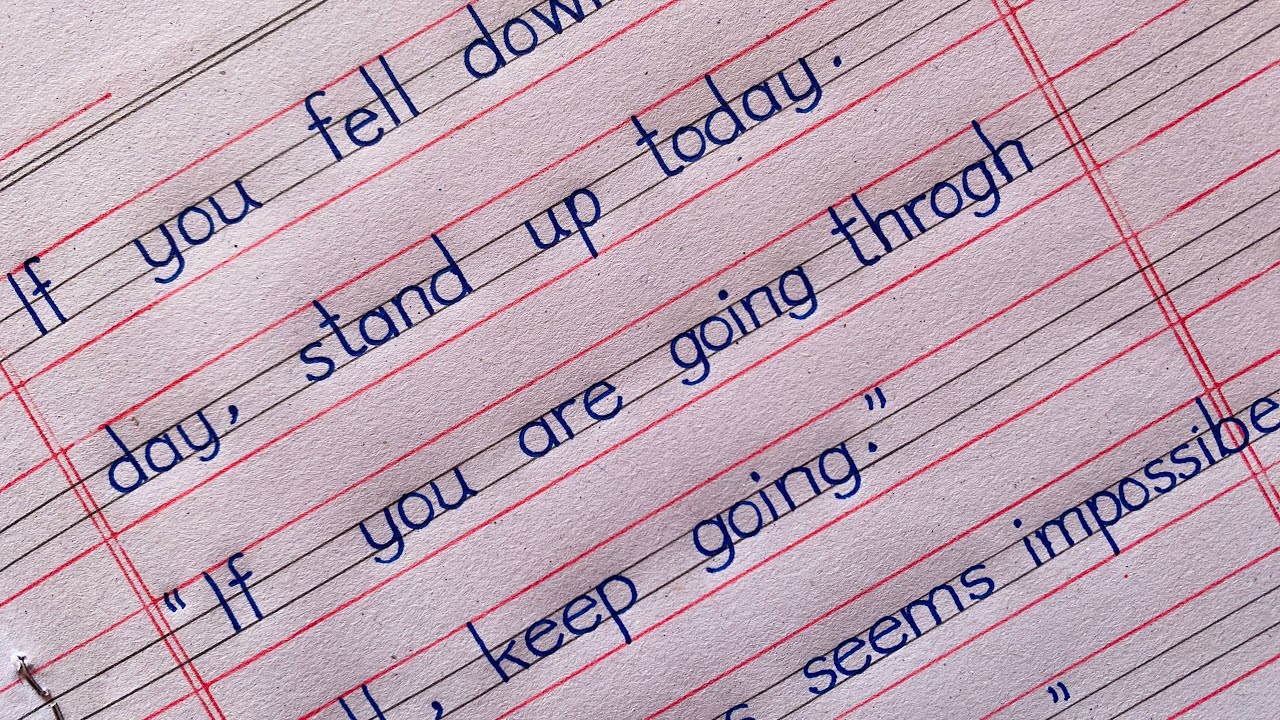 If you fell down
day, stand up today.
"If you are going throgh
ll, keep going."
s seems impossibe
"